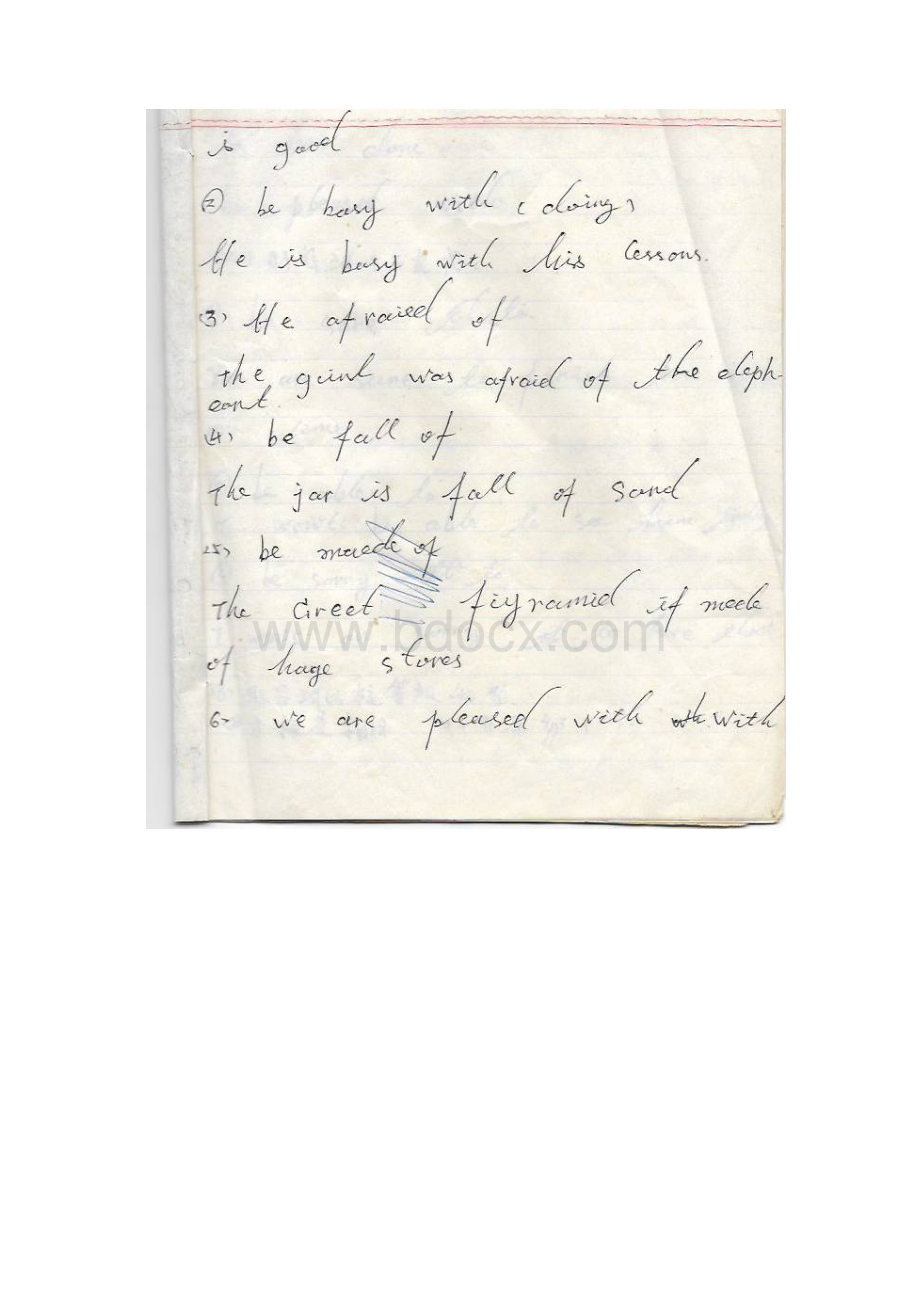 is good
② be basy with (doing)
He is basy with hiss lessons.
(3) He afraied of
The giant was afraid of the eleph-
eant.
(4) be fall of
The jar is fall of sand
(5) be maede of
The Greet fiyramid if mede
of hage stores
6- we are pleased with with
www.bdocx.com